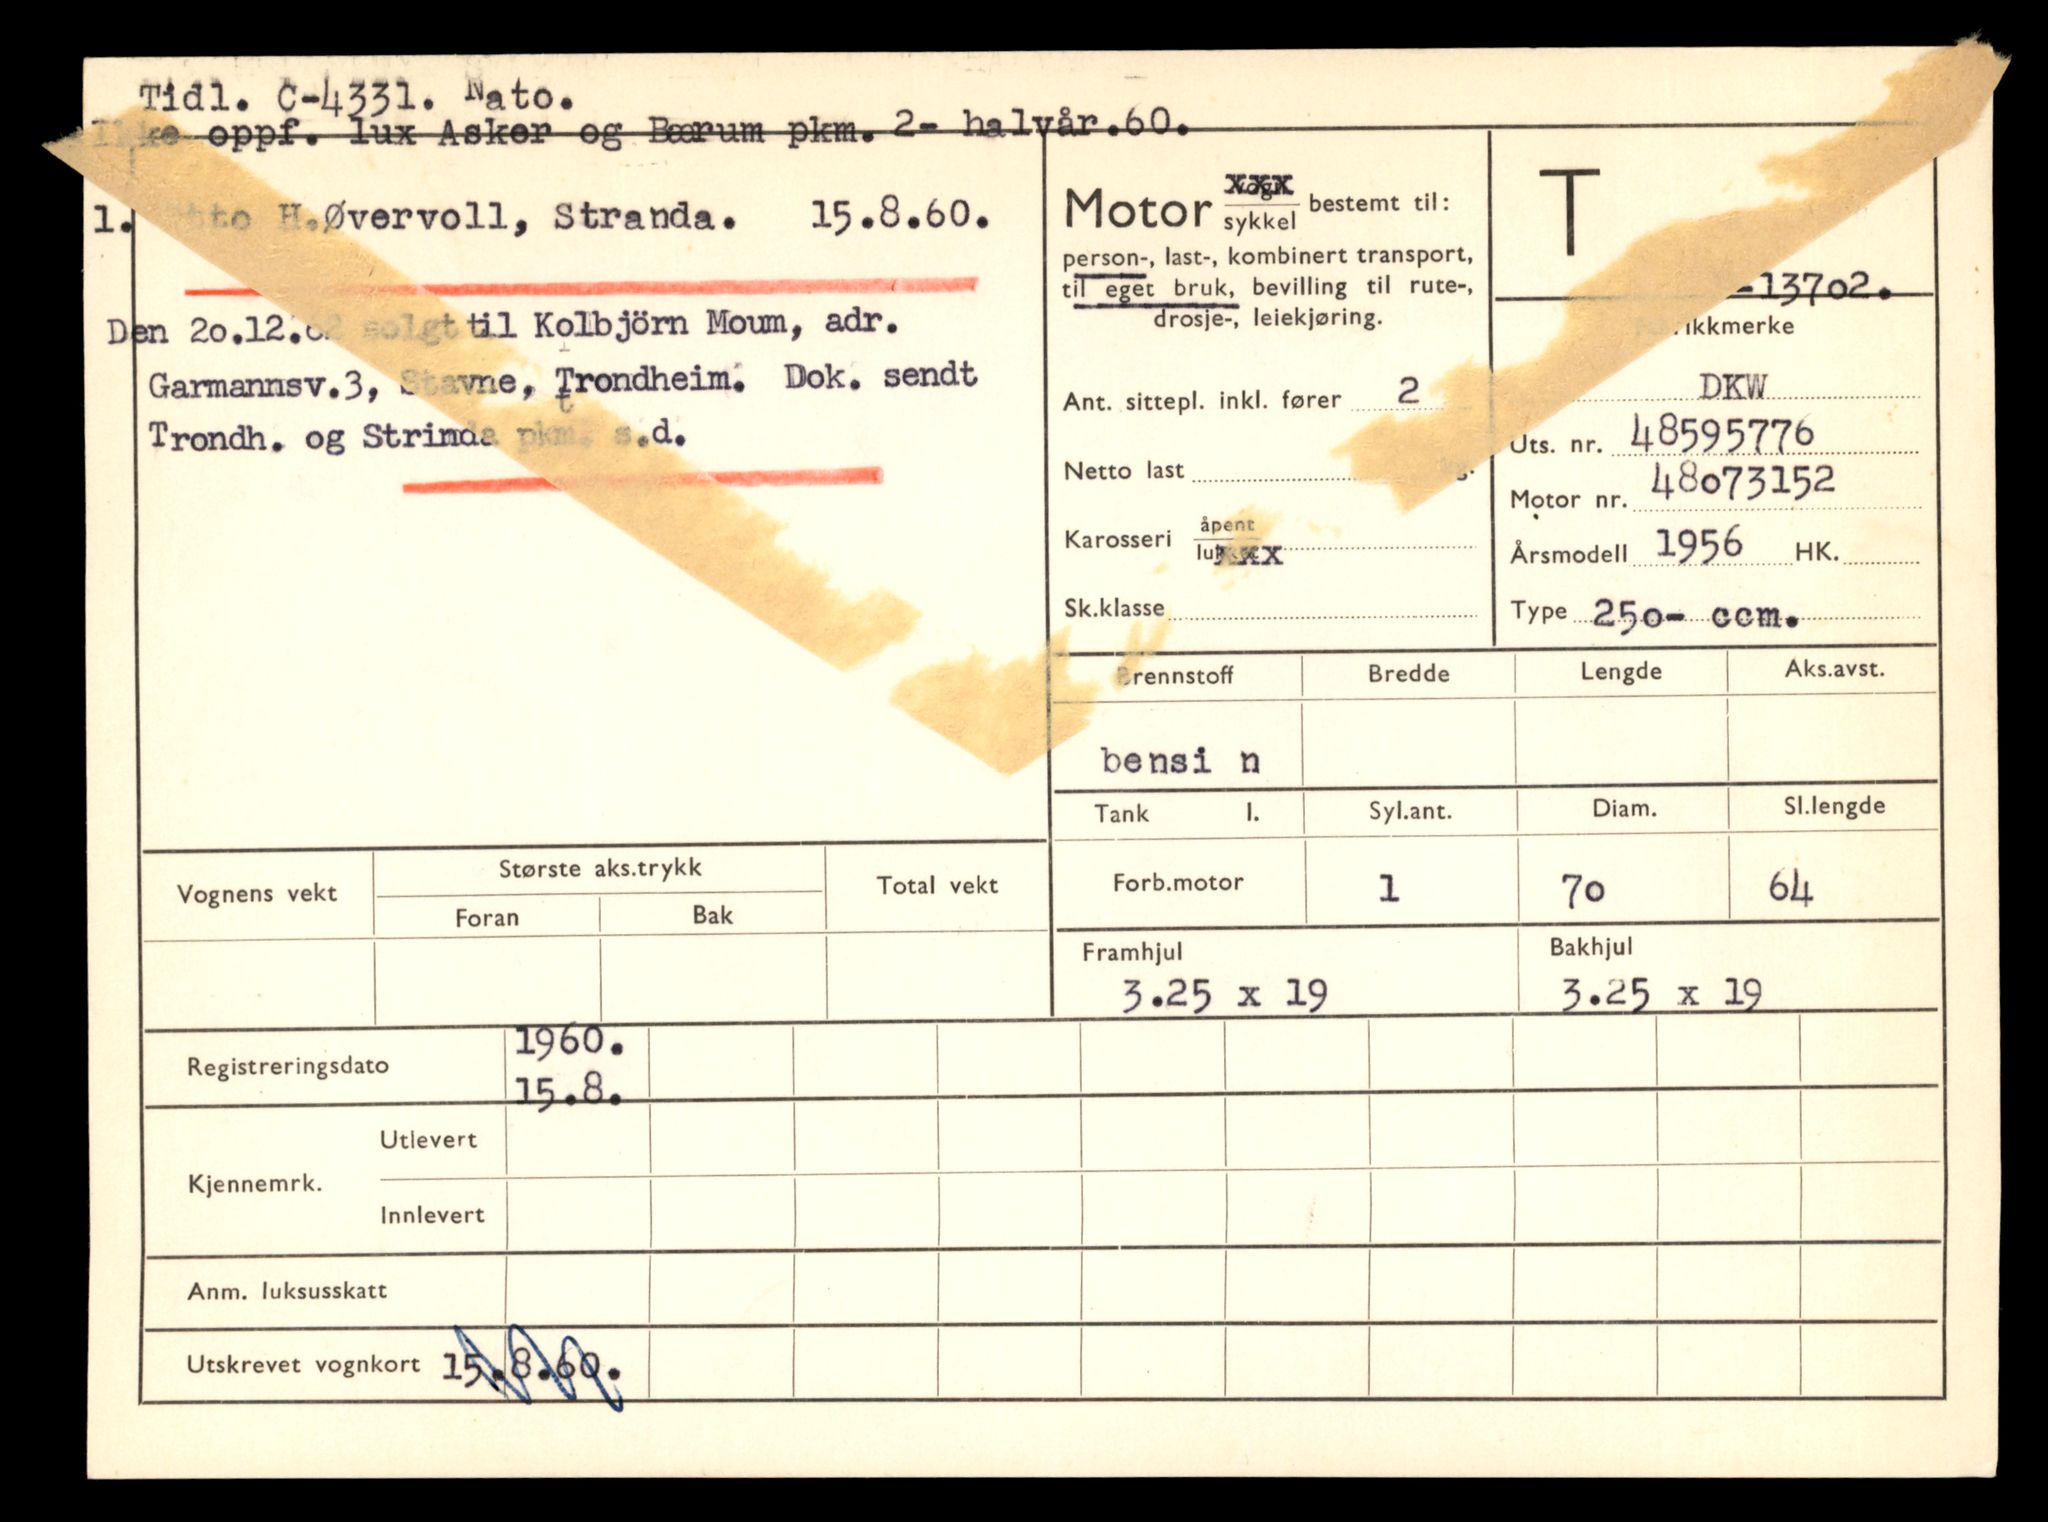 Tidl. C-4331. Nato.
Ikke oppf. lux Asker og Bærum pkm. 2- halvår.60.
1. Otto H.Øvervoll, Stranda. 15.8.60.
Den 20.12.62 solgt til Kolbjörn Moum, adr.
Garmannsv.3, Stavne, Trondheim. Dok. sendt
Trondh. og Strinda pkm. s.d.
Motor vogn/sykkel bestemt til:
person-, last-, kombinert transport,
til eget bruk, bevilling til rute-,
drosje-, leiekjøring.
Ant. sittepl. inkl. fører 2
Netto last kg.
Karosseri åpent/lukket xxx
Sk.klasse
T
-13702.
Fabrikkmerke
DKW
Uts. nr. 48595776
Motor nr. 48073152
Årsmodell 1956 HK.
Type 250- ccm.
Brennstoff Bredde Lengde Aks.avst.
bensi n
Tank l. Syl.ant. Diam. Sl.lengde
Forb.motor 1 70 64
Framhjul Bakhjul
3.25 x 19 3.25 x 19
Vognens vekt Største aks.trykk Total vekt
Foran Bak
Registreringsdato 1960.
15.8.
Kjennemrk. Utlevert
Innlevert
Anm. luksusskatt
Utskrevet vognkort 15.8.60.